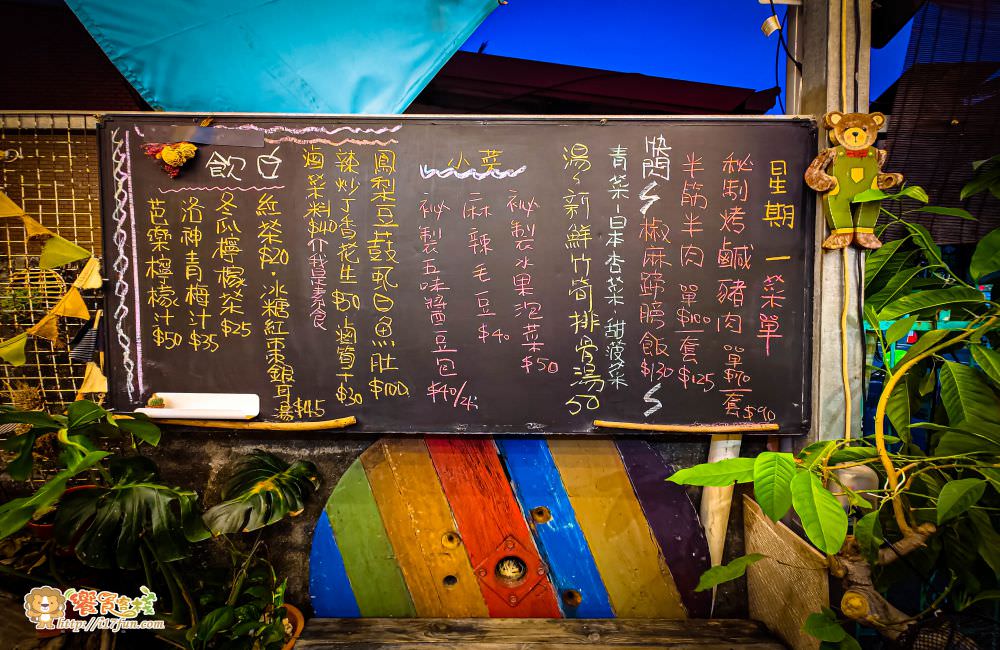 星期一菜單
秘制烤鹹豬肉 單$70 套$90
半筋半肉 單$100 套$125
快閃 椒麻蹄膀飯$130
青菜~日本杏菜、甜菠菜
湯~新鮮竹筍排骨湯50
小菜
祕製水果泡菜 $50
麻辣毛豆 $40
祕製五味醬豆包 $40/
鳳梨豆鼓虱目魚肚 $100
辣炒丁香花生$50 滷筍干$30
滷菜料$40 不我是素食
飲
紅茶$20、冰糖紅棗銀耳湯$45
冬瓜檸檬茶$25
洛神青梅汁$35
芭樂檸檬汁$50
饗食食棧
http://i17fun.com